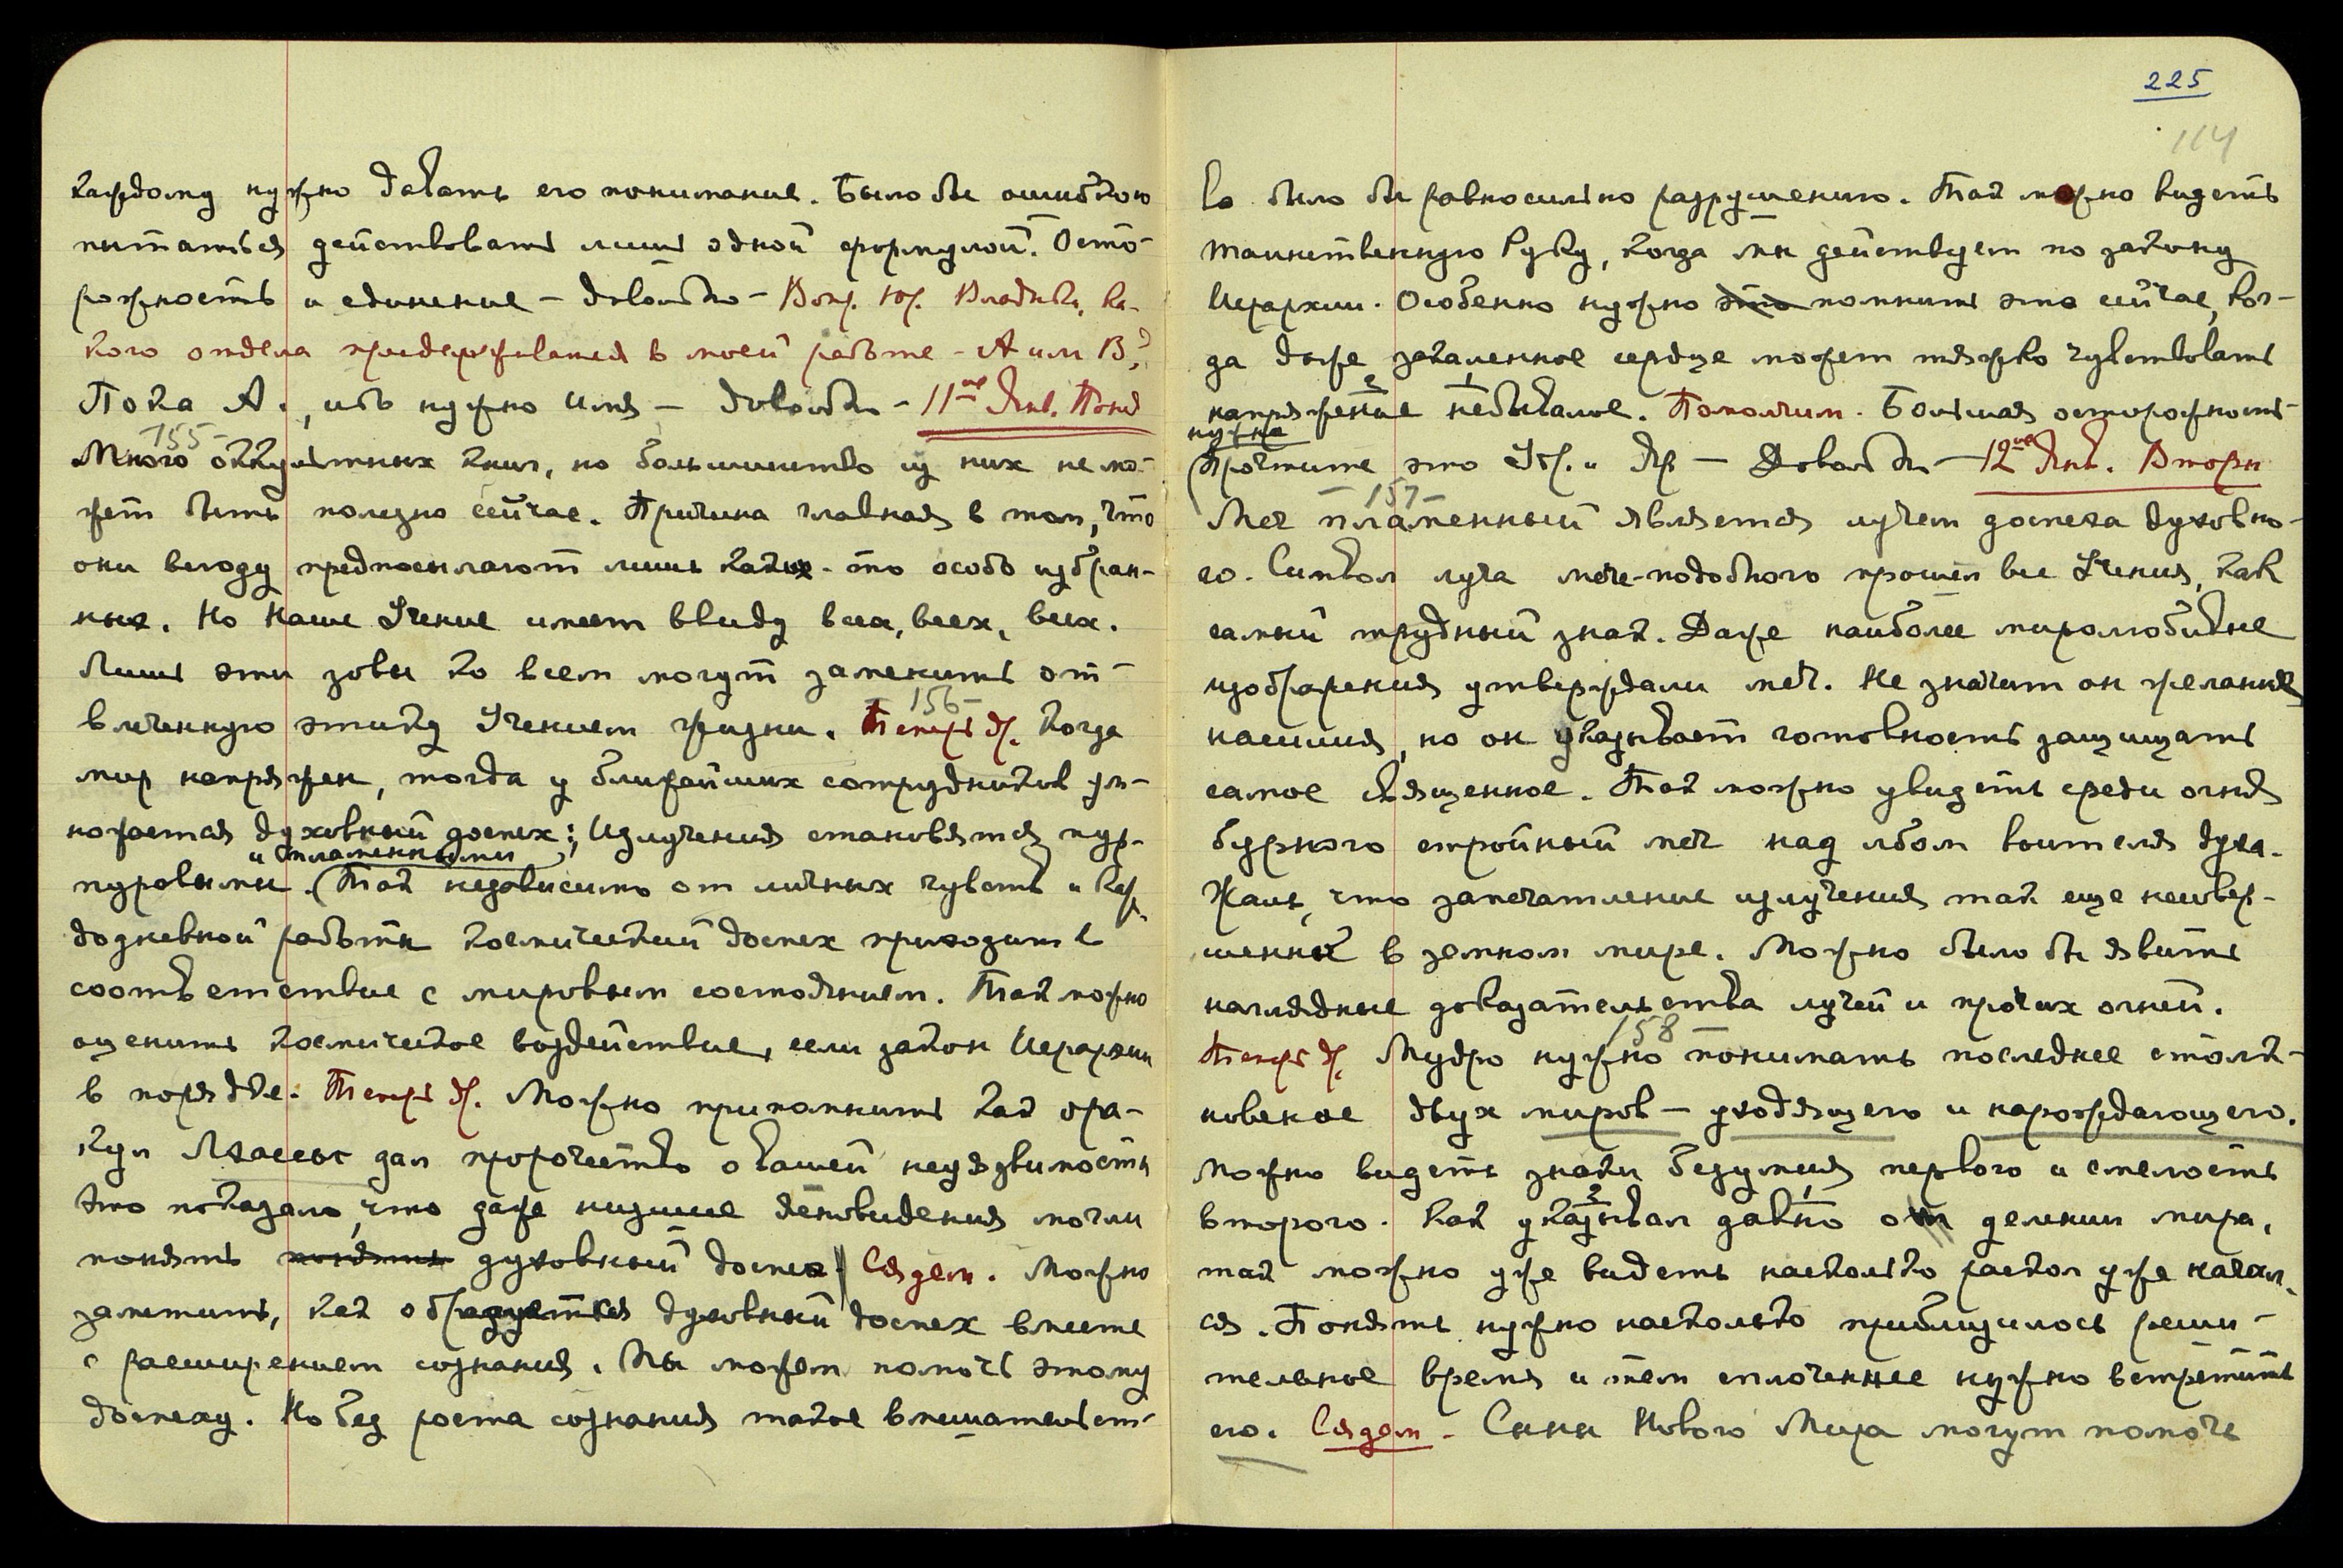 каждому нужно давать его понимание. Было бы ошибкою
пытаться действовать лишь одной формулой. Осто-
рожность и единение – довольно – Вопр. Юр. Владыка, ка-
кого отдела придерживаться в моей работе – А или В?
Пока А., ибо нужно имя – довольно – 11ое Янв. Понед
155
Много оккультных книг, но большинство из них не мо-
жет быть полезно сейчас. Причина главная в том, что
они всюду предпосылают лишь каких-то особо избран-
ных. Но Наше Учение имеет ввиду всех, всех, всех.
Лишь эти зовы ко всем могут заменить от-
156
влеченную этику Учением жизни. Теперь др. Когда
мир напряжен, тогда у ближайших сотрудников ум-
ножается духовный доспех; Излучения становятся пур-
и пламенными
пуровыми. Так независимо от личных чувств и каж
додневной работы космический доспех приходит в
соответствие с мировым состоянием. Так можно
оценить космическое воздействие, если закон Иерархии
в порядке. Теперь др. Можно припомнить как ора-
кул Лхассы дал пророчество о вашей неуязвимости
Это показало, что даже низшие ясновидения могли
понять понять духовный доспех. Сядем. Можно
заметить, как образуется духовный доспех вместе
с расширением сознания. Мы можем помочь этому
доспеху. Но без роста сознания такое вмешательст-
225
114
во было бы равносильно разрушению. Так можно видеть
таинственную Руку, когда мы действуем по закону
Иерархии. Особенно нужно это помнить это сейчас, ког-
да даже закаленное сердце может тяжко чувствовать
2 1
напряжение небывалое. Помолчим. Большая осторожность
нужна
Прочтите это Ур. и Яр – Довольно – 12ое Янв. Вторн
157
Меч пламенный является лучем доспеха духовно-
го. Символ луча мече-подобного прошел все Учения, как
самый трудный знак. Даже наиболее миролюбивые
изображения утверждали меч. Не значит он желание
насилия, но он указывает готовность защищать
самое священное. Так можно увидеть среди огня
бурного стройный меч над лбом воителя духа.
Жаль, что запечатление излучения так еще несовер-
шенны в земном мире. Можно было бы явить
наглядные доказательства лучей и прочих огней.
158
Теперь др. Мудро нужно понимать последнее столк-
новение двух миров – уходящего и нарождающего.
Можно видеть знаки безумия первого и смелость
2 1
второго. Как указывал давно о делении мира,
так можно уже видеть насколько раскол уже начал
ся. Понять нужно насколько приблизилось реши-
тельное время и тем сплоченнее нужно встретить
его. Сядем. Сыны Нового Мира могут помочь